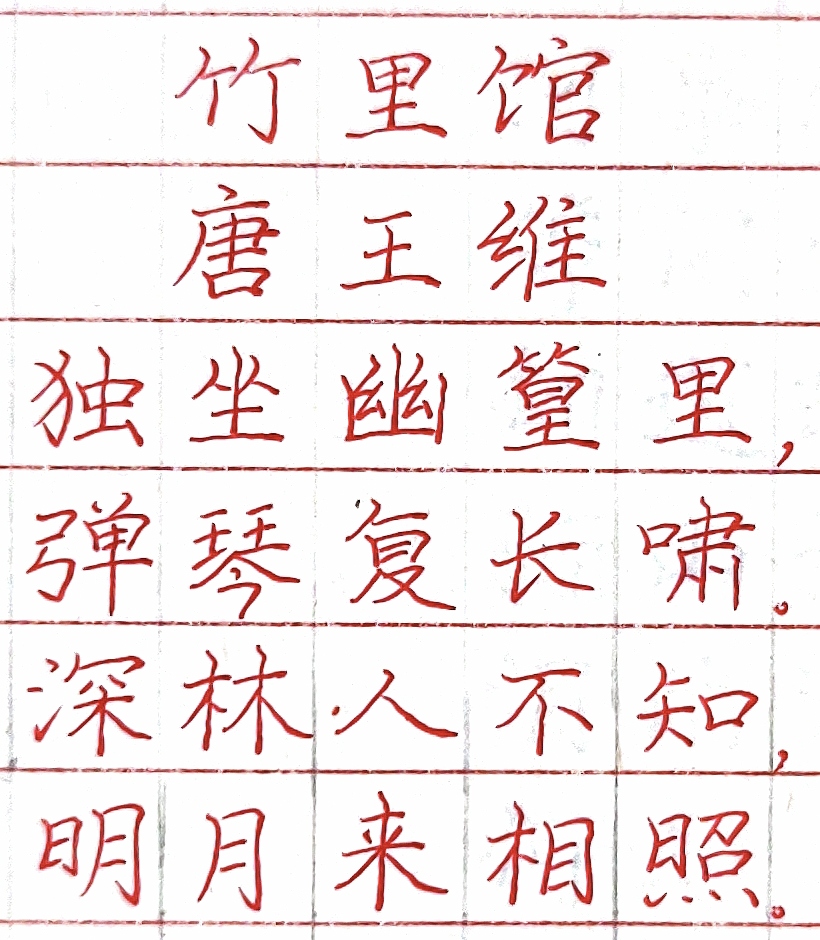 竹里馆
唐 王维
独坐幽篁里，
弹琴复长啸。
深林人不知，
明月来相照。